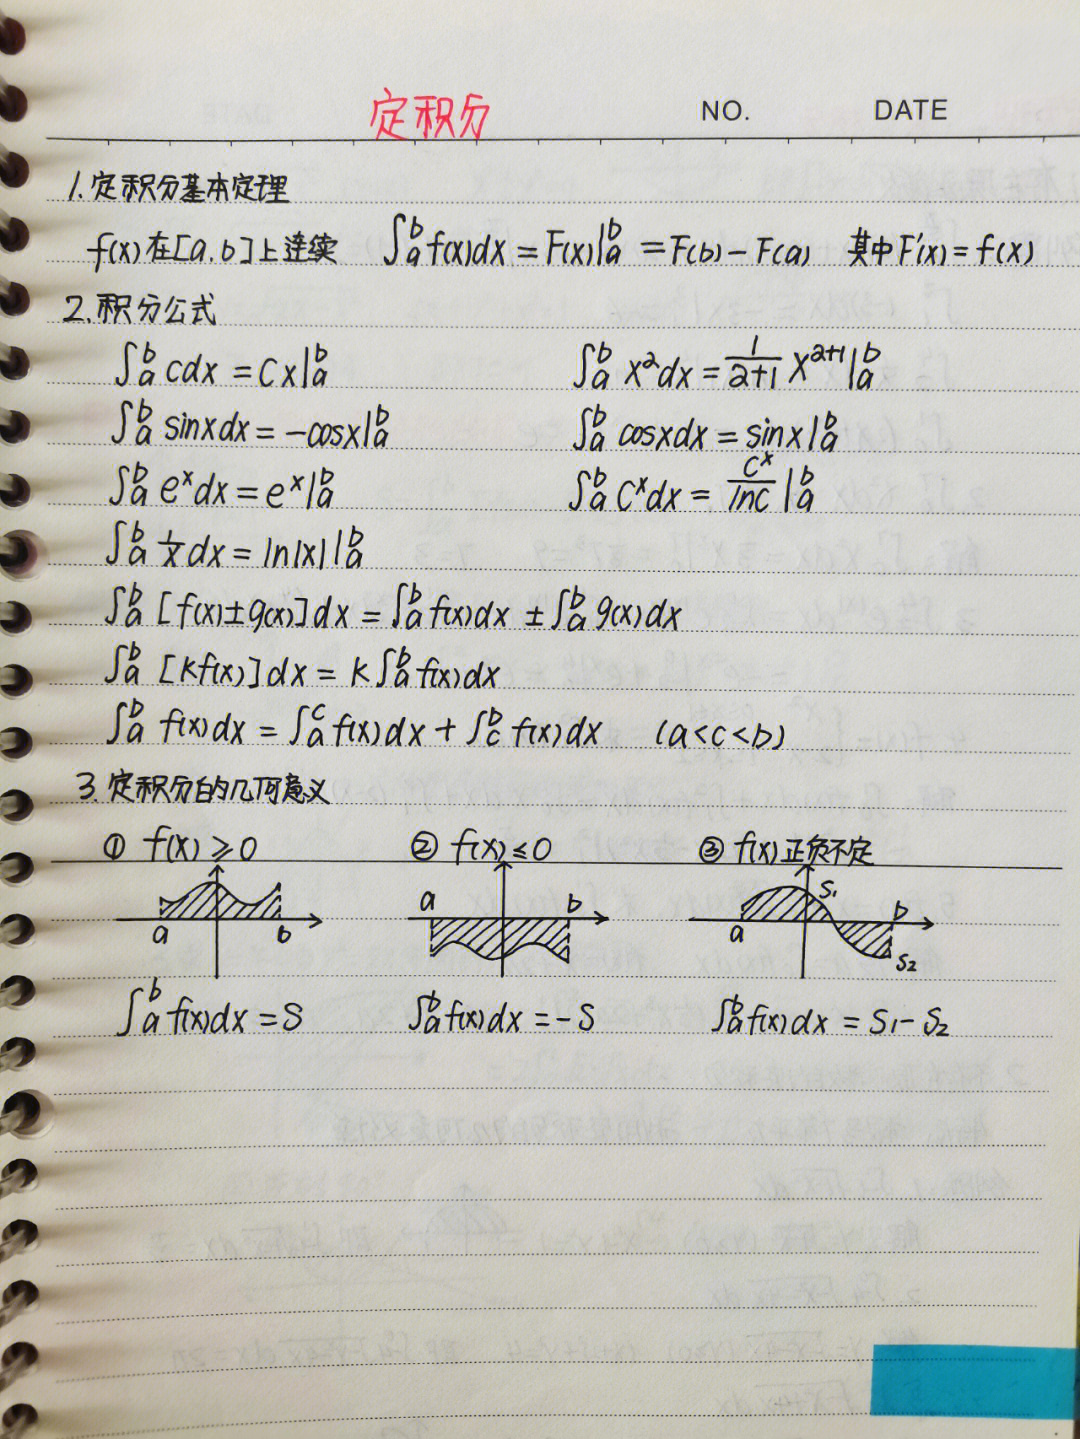 定积分 NO. DATE
1.定积分基本定理
f(x)在[a,b]上连续 ∫_a^b f(x)dx = F(x)|_a^b = F(b) - F(a) 其中F'(x) = f(x)
2.积分公式
∫_a^b cdx = cx|_a^b ∫_a^b x^2 dx = 1/(2+1) x^(2+1)|_a^b
∫_a^b sinxdx = -cosx|_a^b ∫_a^b cosxdx = sinx|_a^b
∫_a^b e^x dx = e^x|_a^b ∫_a^b c^x dx = c^x/lnc |_a^b
∫_a^b 1/x dx = ln|x| |_a^b
∫_a^b [f(x)±g(x)]dx = ∫_a^b f(x)dx ± ∫_a^b g(x)dx
∫_a^b [kf(x)]dx = k∫_a^b f(x)dx
∫_a^b f(x)dx = ∫_a^c f(x)dx + ∫_c^b f(x)dx (a<c<b)
3.定积分的几何意义
① f(x)≥0 ② f(x)≤0 ③ f(x)正负不定
a b a b a b S₁ S₂
∫_a^b f(x)dx = S ∫_a^b f(x)dx = -S ∫_a^b f(x)dx = S₁ - S₂